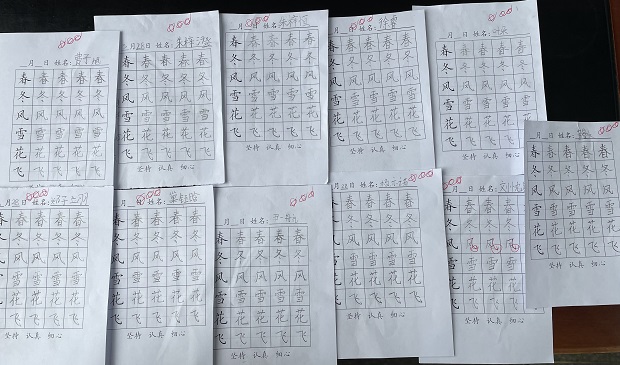 月 日 姓名:
春 春 春 春 春
冬 冬 冬 冬 冬
风 风 风 风 风
雪 雪 雪 雪 雪
花 花 花 花 花
飞 飞 飞 飞 飞
月28日 姓名:
春 春 春 春 春
冬 冬 冬 冬 冬
风 风 风 风 风
雪 雪 雪 雪 雪
花 花 花 花 花
飞 飞 飞 飞 飞
月 日 姓名:
春 春 春 春 春
冬 冬 冬 冬 冬
风 风 风 风 风
雪 雪 雪 雪 雪
花 花 花 花 花
飞 飞 飞 飞 飞
坚持 认真 细心
月 日 姓名:
春 春 春 春 春
冬 冬 冬 冬 冬
风 风 风 风 风
雪 雪 雪 雪 雪
花 花 花 花 花
飞 飞 飞 飞 飞
坚持 认真 细心
月 日 姓名:
春 春 春 春 春
冬 冬 冬 冬 冬
风 风 风 风 风
雪 雪 雪 雪 雪
花 花 花 花 花
飞 飞 飞 飞 飞
坚持 认真 细心
月 日 姓名:
春 春 春 春
冬 冬 冬 冬 冬
风 风 风 风 风
雪 雪 雪 雪 雪
花 花 花 花 花
飞 飞 飞 飞 飞
月28日 姓名:
春 春 春 春
冬 冬 冬 冬
风 风 风 风
雪 雪 雪 雪
花 花 花 花
飞 飞 飞
坚持 认真 细心
月 日 姓名:
春 春 春 春 春
冬 冬 冬 冬 冬
风 风 风 风 风
雪 雪 雪 雪 雪
花 花 花 花 花
飞 飞 飞 飞 飞
坚持 认真 细心
月 日 姓名:
春 春 春 春
冬 冬 冬 冬
风 风 风 风
雪 雪 雪 雪
花 花 花 花
飞 飞 飞 飞
坚持 认真 细心
月28日 姓名:
春 春 春 春
冬 冬 冬 冬
风 风 风 风
雪 雪 雪 雪
花 花 花 花
飞 飞 飞 飞
坚持 认真 细心
月28日 姓名:
春 春 春 春
冬 冬 冬 冬
风 风 风 风
雪 雪 雪 雪
花 花 花 花
飞 飞 飞 飞
坚持 认真 细心